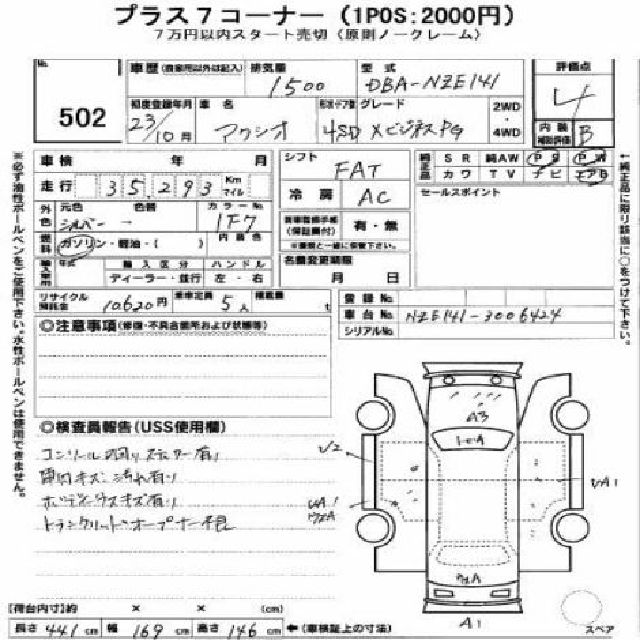 プラス7コーナー（1POS:2000円）
7万円以内スタート売切（原則ノークレーム）
No. 502
車歴（自家用以外は記入） 排気量 1500 型式 DBA-NZE141 評価点 4
初度登録年月 23/10月 車名 アクシオ 形状・ドア数 4SD グレード XビジネスPG 2WD・4WD 内装補助評価 B
車検 年 月 シフト FAT
純正品 SR 純AW PS PW カワ TV ナビ エアB
走行 35,293 Km マイル 冷房 AC セールスポイント
外色 元色 シルバー 色替 ー カラーNo. 1F7
車両整備手帳（保証書付） 有・無
※書類と一緒に保管下さい。
燃料 ガソリン・軽油・( ) 内装色
輸入車用 年式 輸入区分 ハンドル
ディーラー・並行 左・右
名義変更期限 月 日
リサイクル預託金 10620円 乗車定員 5人 積載量 t
登録No.
車台No. NZE141-3006424
シリアルNo.
◎注意事項（修復・不具合箇所および状態等）
◎検査員報告（USS使用欄）
コンソール回りステッカー有り
室内キズ汚れ有り
ボディーウスキズ有り
トランクリッドオープナー不良
A3
U2
UA1
A1
スペア
【荷台内寸】約 × × (cm)
長さ 441 cm 幅 169 cm 高さ 146 cm ←（車検証上の寸法）
※必ず油性ボールペンをご使用下さい。水性ボールペンは使用できません。
←純正品に限り該当に○をつけて下さい。